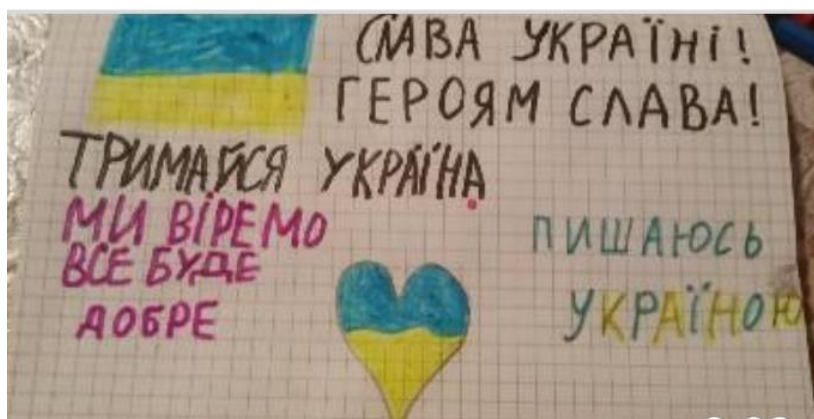 СЛАВА УКРАЇНІ!
ГЕРОЯМ СЛАВА!
ТРИМАЙСЯ УКРАЇНА
МИ ВІРЕМО
ВСЕ БУДЕ
ДОБРЕ
ПИШАЮСЬ
УКРАЇНОЮ